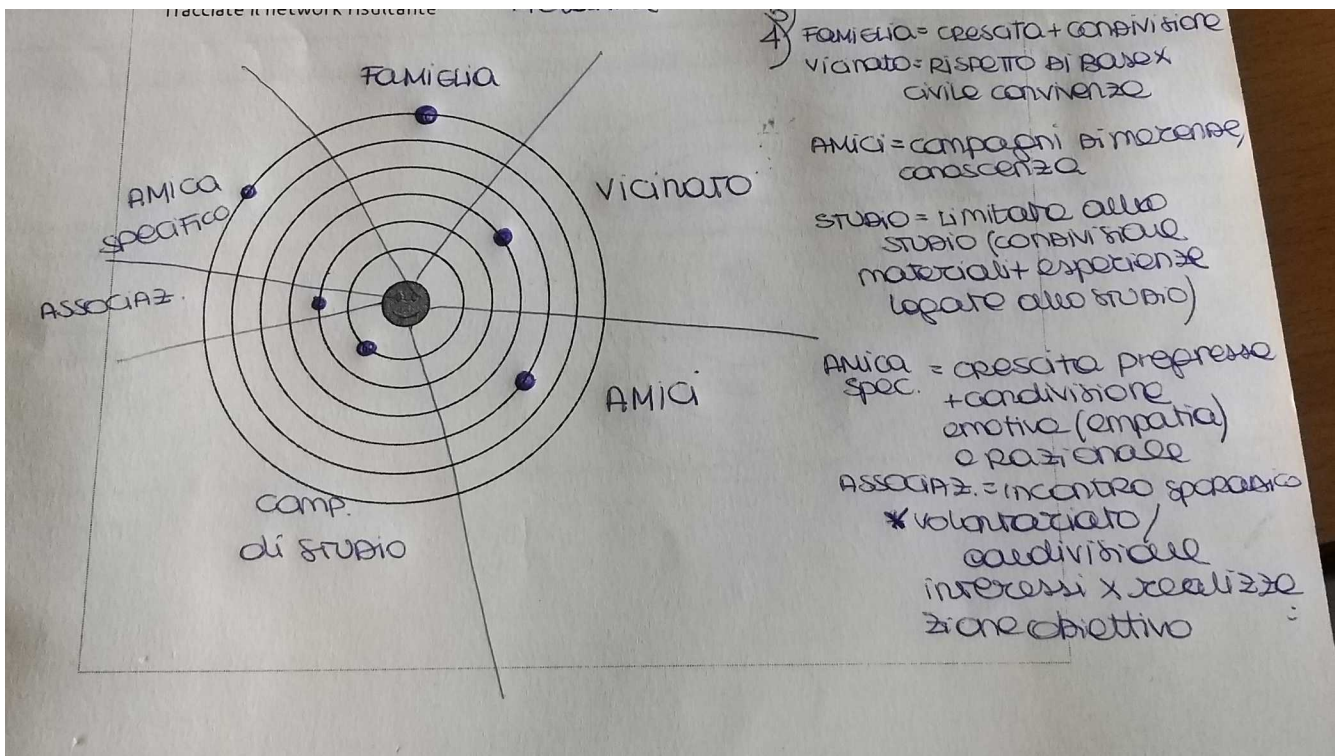 Tracciate il network risultante
FAMIGLIA
AMICA
SPECIFICO
VICINATO
ASSOCIAZ.
AMICI
COMP.
di STUDIO
4) FAMIGLIA = CRESCITA + CONDIVISIONE
VICINATO = RISPETTO DI BASE X
CIVILE CONVIVENZA
AMICI = COMPAGNI DI MERENDE,
CONOSCENZA
STUDIO = LIMITATO ALLO
STUDIO (CONDIVISIONE
MATERIALI + ESPERIENZE
LEGATE ALLO STUDIO)
AMICA = CRESCITA PREGRESSA
SPEC. + CONDIVISIONE
EMOTIVA (EMPATIA)
E RAZIONALE
ASSOCIAZ. = INCONTRO SPORADICO
* VOLONTARIATO /
CONDIVISIONE
INTERESSI X REALIZZA
ZIONE OBIETTIVO